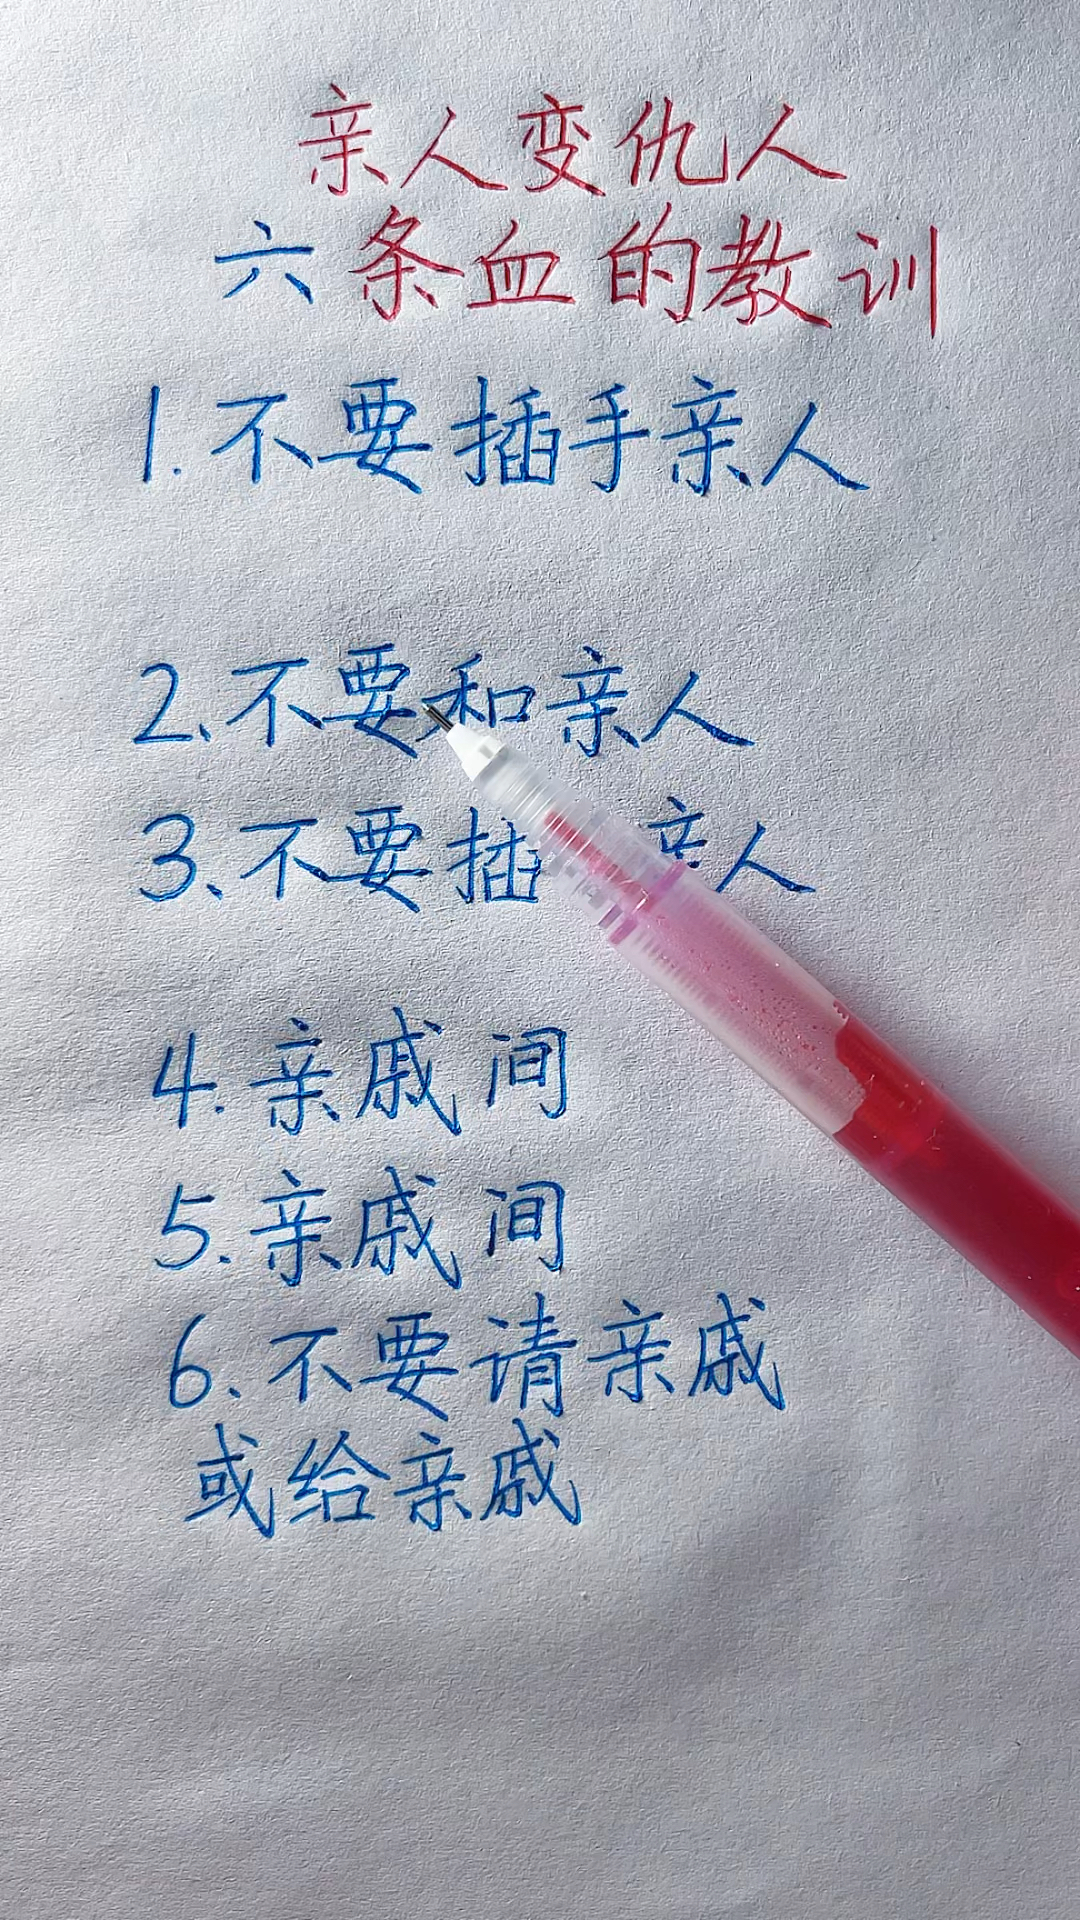 亲人变仇人
六条血的教训
1.不要插手亲人
2、不要和亲人
3、不要插 亲人
4.亲戚间
5.亲戚间
6、不要请亲戚
或给亲戚